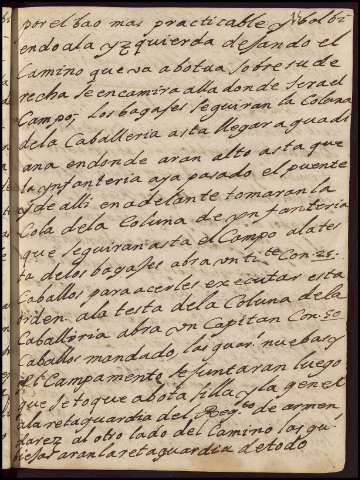 por el bao mas practicable y bolbi
endo ala yzquierda dejando el
Camino que va abotua sobre su de
recha se encamira alla donde sera el
Campo; los bagajes seguiran la Coluna
dela Caballeria asta llegar a guadi
ana endonde aran alto asta que
la ynfanteria aya pasado el puente
y de alli en adelante tomaran la
Cola dela Coluna de ynfanteria
que seguiran asta el Campo ala tes
ta delos bagajes abra un ti.te Con 25.
Caballos para acerles executar esta
orden. ala testa dela Coluna dela
Caballeria abra un Capitan Con 50
Caballos mandado, las guar. nuebas y
el Campamento se juntaran luego
que se toque abota silla, y la gen el
ala retaguardia del Reg.to de armen
darez al otro lado del Camino, las gu.
viejas aran la retaguardia de todo